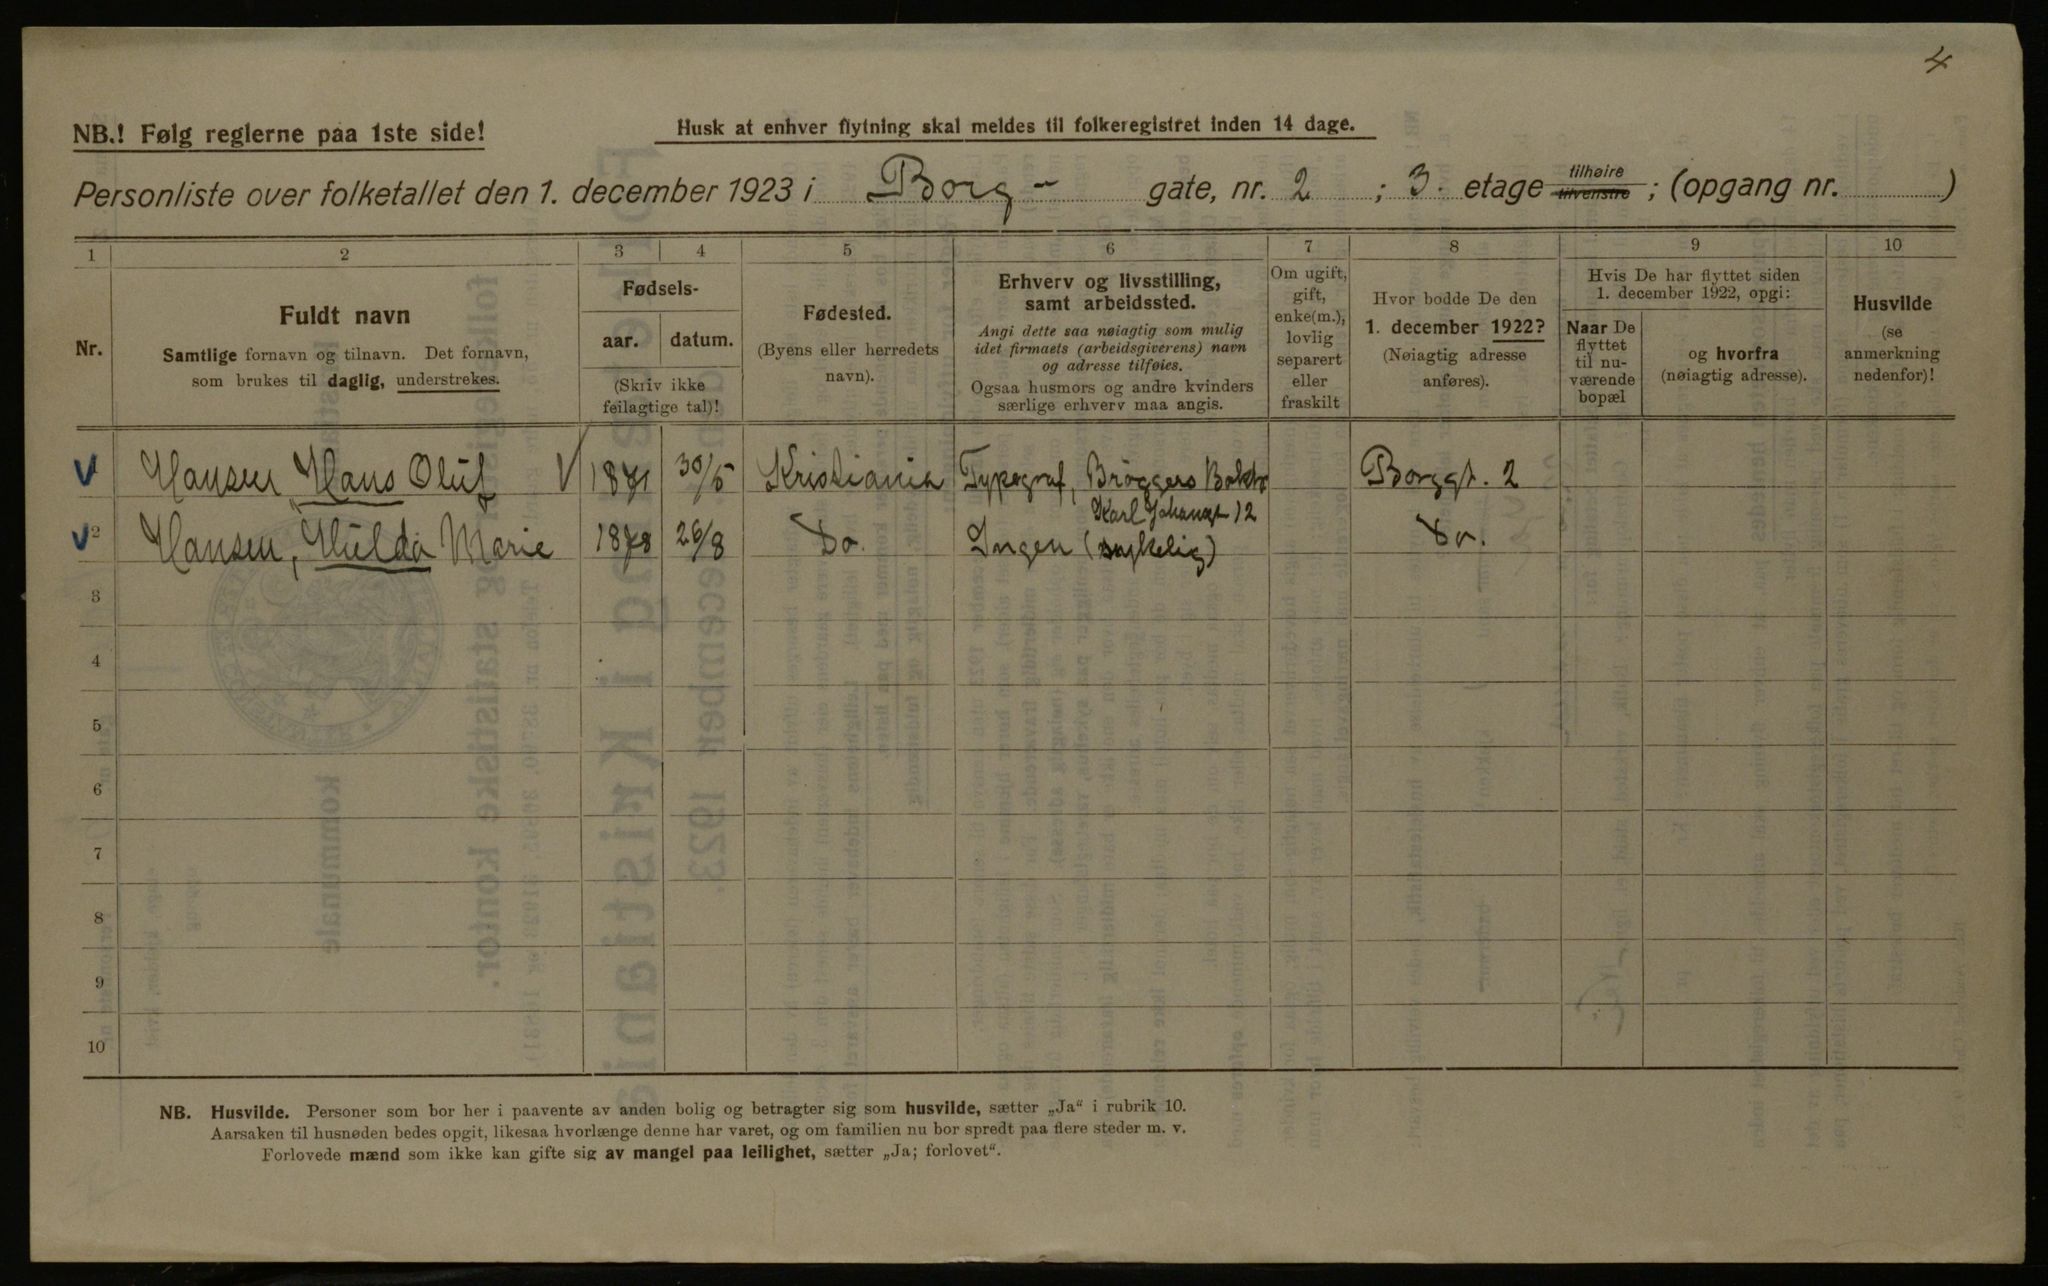 4
NB.! Følg reglerne paa 1ste side!
Husk at enhver flytning skal meldes til folkeregistret inden 14 dage.
Personliste over folketallet den 1. december 1923 i Borg- gate, nr. 2 ; 3. etage tilhøire tilvenstre ; (opgang nr. )
1 2 3 4 5 6 7 8 9 10
Nr.
Fuldt navn
Samtlige fornavn og tilnavn. Det fornavn,
som brukes til daglig, understrekes.
Fødsels-
aar. datum.
(Skriv ikke
feilagtige tal)!
Fødested.
(Byens eller herredets
navn).
Erhverv og livsstilling,
samt arbeidssted.
Angi dette saa nøiagtig som mulig
idet firmaets (arbeidsgiverens) navn
og adresse tilføies.
Ogsaa husmors og andre kvinders
særlige erhverv maa angis.
Om ugift,
gift,
enke(m.),
lovlig
separert
eller
fraskilt
Hvor bodde De den
1. december 1922?
(Nøiagtig adresse
anføres).
Hvis De har flyttet siden
1. december 1922, opgi:
Naar De
flyttet
til nu-
værende
bopæl
og hvorfra
(nøiagtig adresse).
Husvilde
(se
anmerkning
nedenfor)!
1 Hansen, Hans Oluf 1871 30/5 Kristiania Typograf, Brøggers Boktr Borggt. 2
Karl Johansgt 12
2 Hansen, Hulda Marie 1878 26/8 Do. Ingen (sykelig) Do.
3
4
5
6
7
8
9
10
NB. Husvilde. Personer som bor her i paavente av anden bolig og betragter sig som husvilde, sætter „Ja“ i rubrik 10.
Aarsaken til husnøden bedes opgit, likesaa hvorlænge denne har varet, og om familien nu bor spredt paa flere steder m. v.
Forlovede mænd som ikke kan gifte sig av mangel paa leilighet, sætter „Ja; forlovet“.